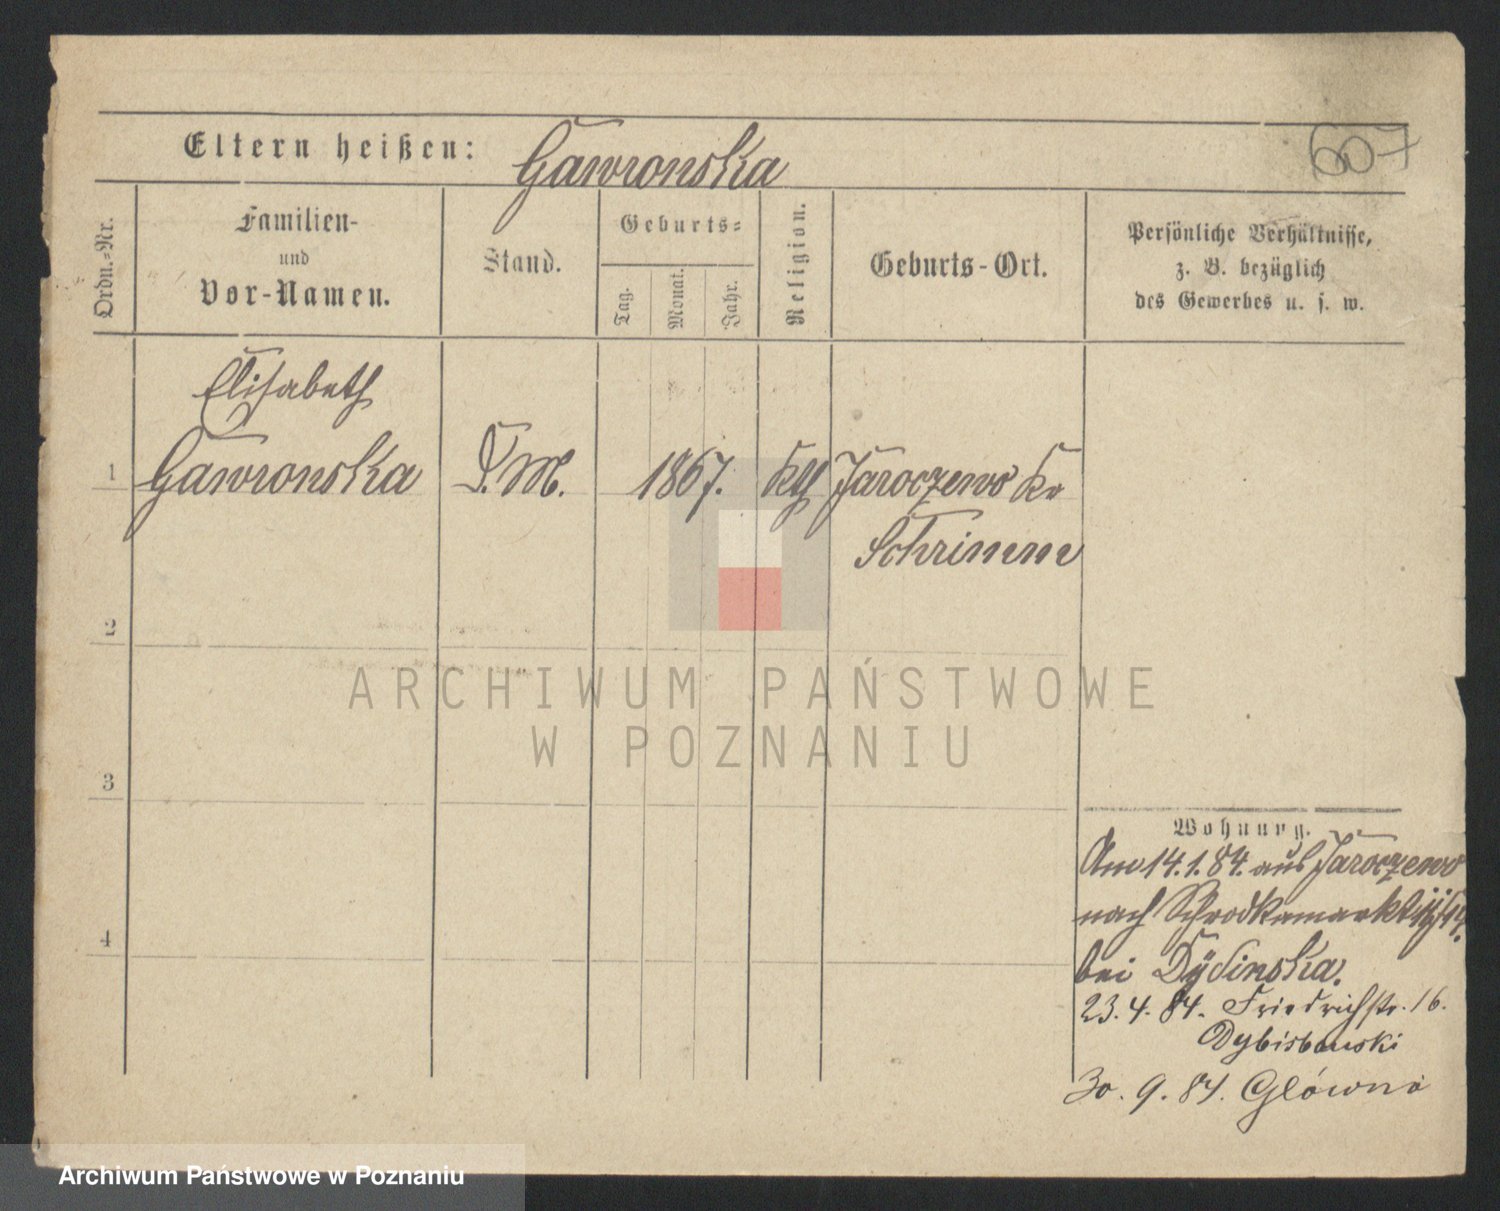 607
Eltern heißen: Gawronska
Ordn.-Nr.
Familien-
und
Vor-Namen.
Stand.
Geburts-
Tag.
Monat.
Jahr.
Religion.
Geburts-Ort.
Persönliche Verhältnisse,
z. B. bezüglich
des Gewerbes u. s. w.
Elisabeth
1 Gawronska D.M. 1867. Kth Jaroczewo Kr
Schrimm
2
3
4
Wohnung.
Am 14.1.84. aus Jaroczewo
nach Schrodkamarkt
bei
23.4.84. Friedrichstr. 16.
30.9.84. Główno
ARCHIWUM PAŃSTWOWE
W POZNANIU
Archiwum Państwowe w Poznaniu